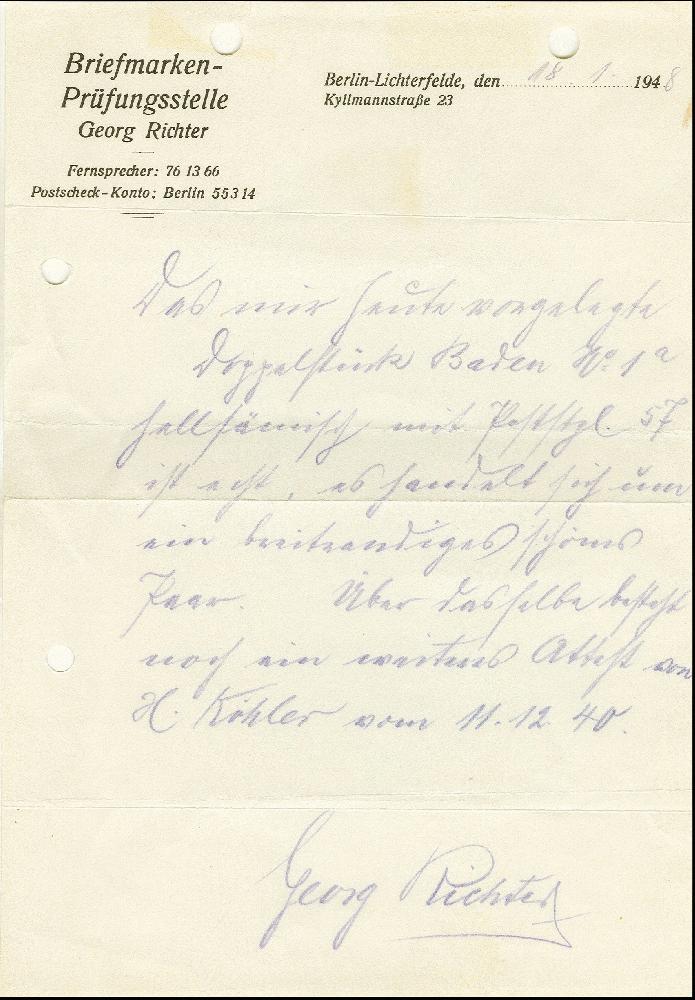 Briefmarken-
Prüfungsstelle
Georg Richter
Fernsprecher: 76 13 66
Postscheck-Konto: Berlin 55314
Berlin-Lichterfelde, den 18. 1. 1948
Kyllmannstraße 23
Das mir heute vorgelegte
Doppelstück Baden No. 1a
hellsämisch mit Poststpl. 57
ist echt, es handelt sich um
ein breitrandiges schönes
Paar. Über dasselbe besteht
noch ein weiteres Attest von
H. Köhler vom 11.12.40.
Georg Richter